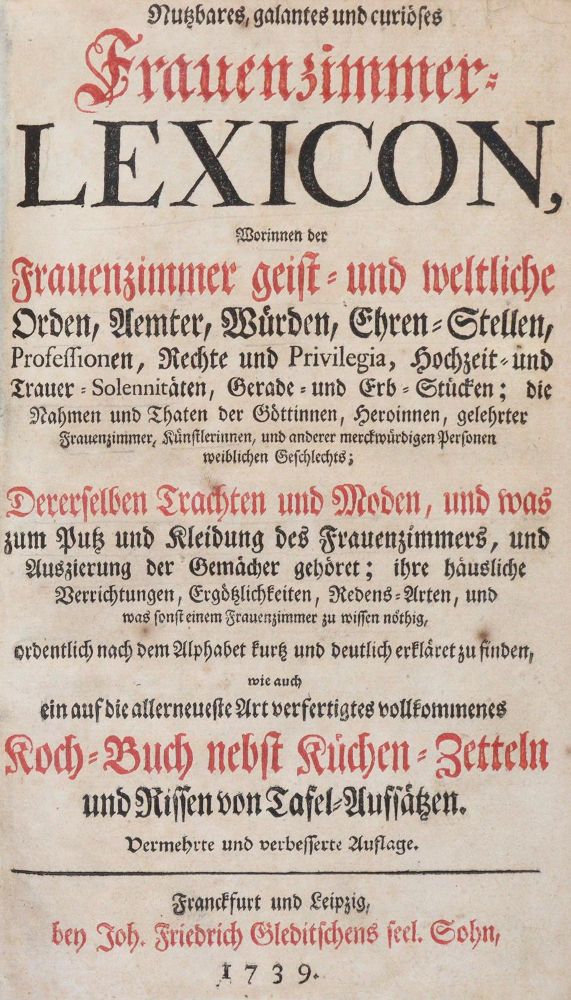 Nutzbares, galantes und curiöses
Frauenzimmer-
LEXICON,
Worinnen der
Frauenzimmer geist- und weltliche
Orden, Aemter, Würden, Ehren-Stellen,
Professionen, Rechte und Privilegia, Hochzeit- und
Trauer-Solennitäten, Gerade- und Erb-Stücken; die
Nahmen und Thaten der Göttinnen, Heroinnen, gelehrter
Frauenzimmer, Künstlerinnen, und anderer merckwürdigen Personen
weiblichen Geschlechts;
Dererselben Trachten und Moden, und was
zum Putz und Kleidung des Frauenzimmers, und
Auszierung der Gemächer gehöret; ihre häusliche
Verrichtungen, Ergötzlichkeiten, Redens-Arten, und
was sonst einem Frauenzimmer zu wissen nöthig,
ordentlich nach dem Alphabet kurtz und deutlich erkläret zu finden,
wie auch
ein auf die allerneueste Art verfertigtes vollkommenes
Koch-Buch nebst Küchen-Zetteln
und Rissen von Tafel-Aufsätzen.
Vermehrte und verbesserte Auflage.
Franckfurt und Leipzig,
bey Joh. Friedrich Gleditschens seel. Sohn,
1739.